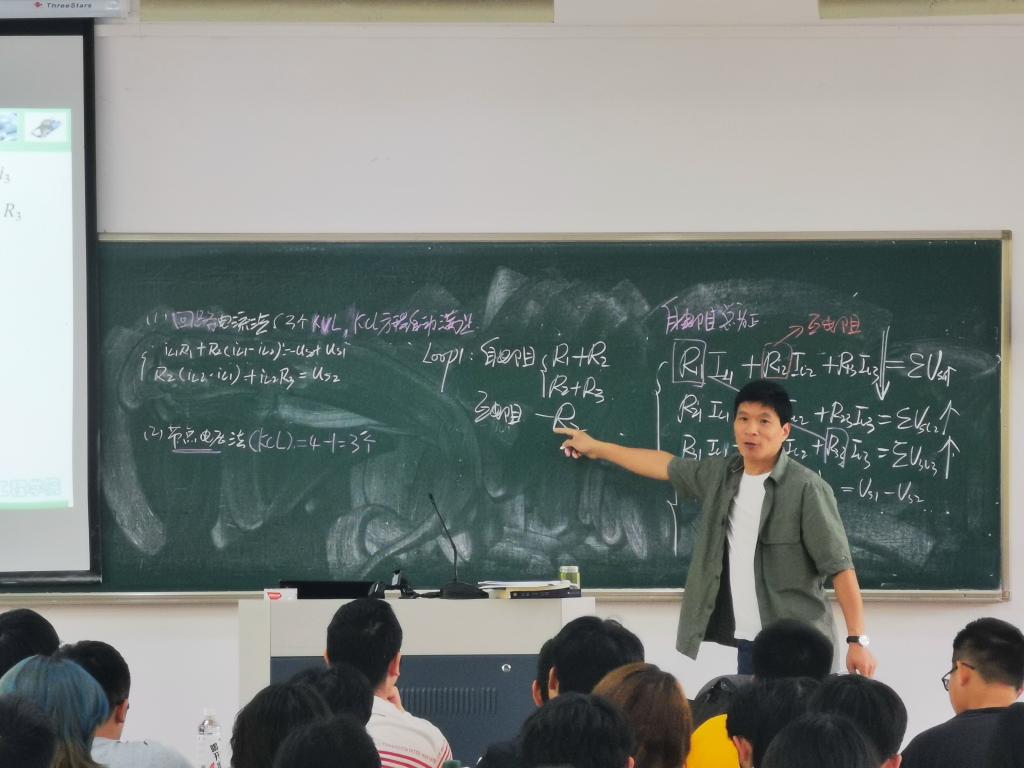 ThreeStars
i3
R3
工程学院
(1) 回路电流法 (2个KVL, KCL方程自动满足
iL1R1+R2(iL1-iL2)=-US2+US1
R2(iL2-iL1)+iL2R3=US2
(2) 节点电压法(KCL)=4-1=3个
Loop1: 自电阻 R1+R2
R2+R3
互电阻 -R2
自电阻
互电阻
R11 IL1+R12 IL2+R13 IL3=ΣUSL1↑
R21 IL1 +R23 IL3=ΣUSL2↑
R31 IL1 +R33 IL3=ΣUSL3↑
=US1-US2